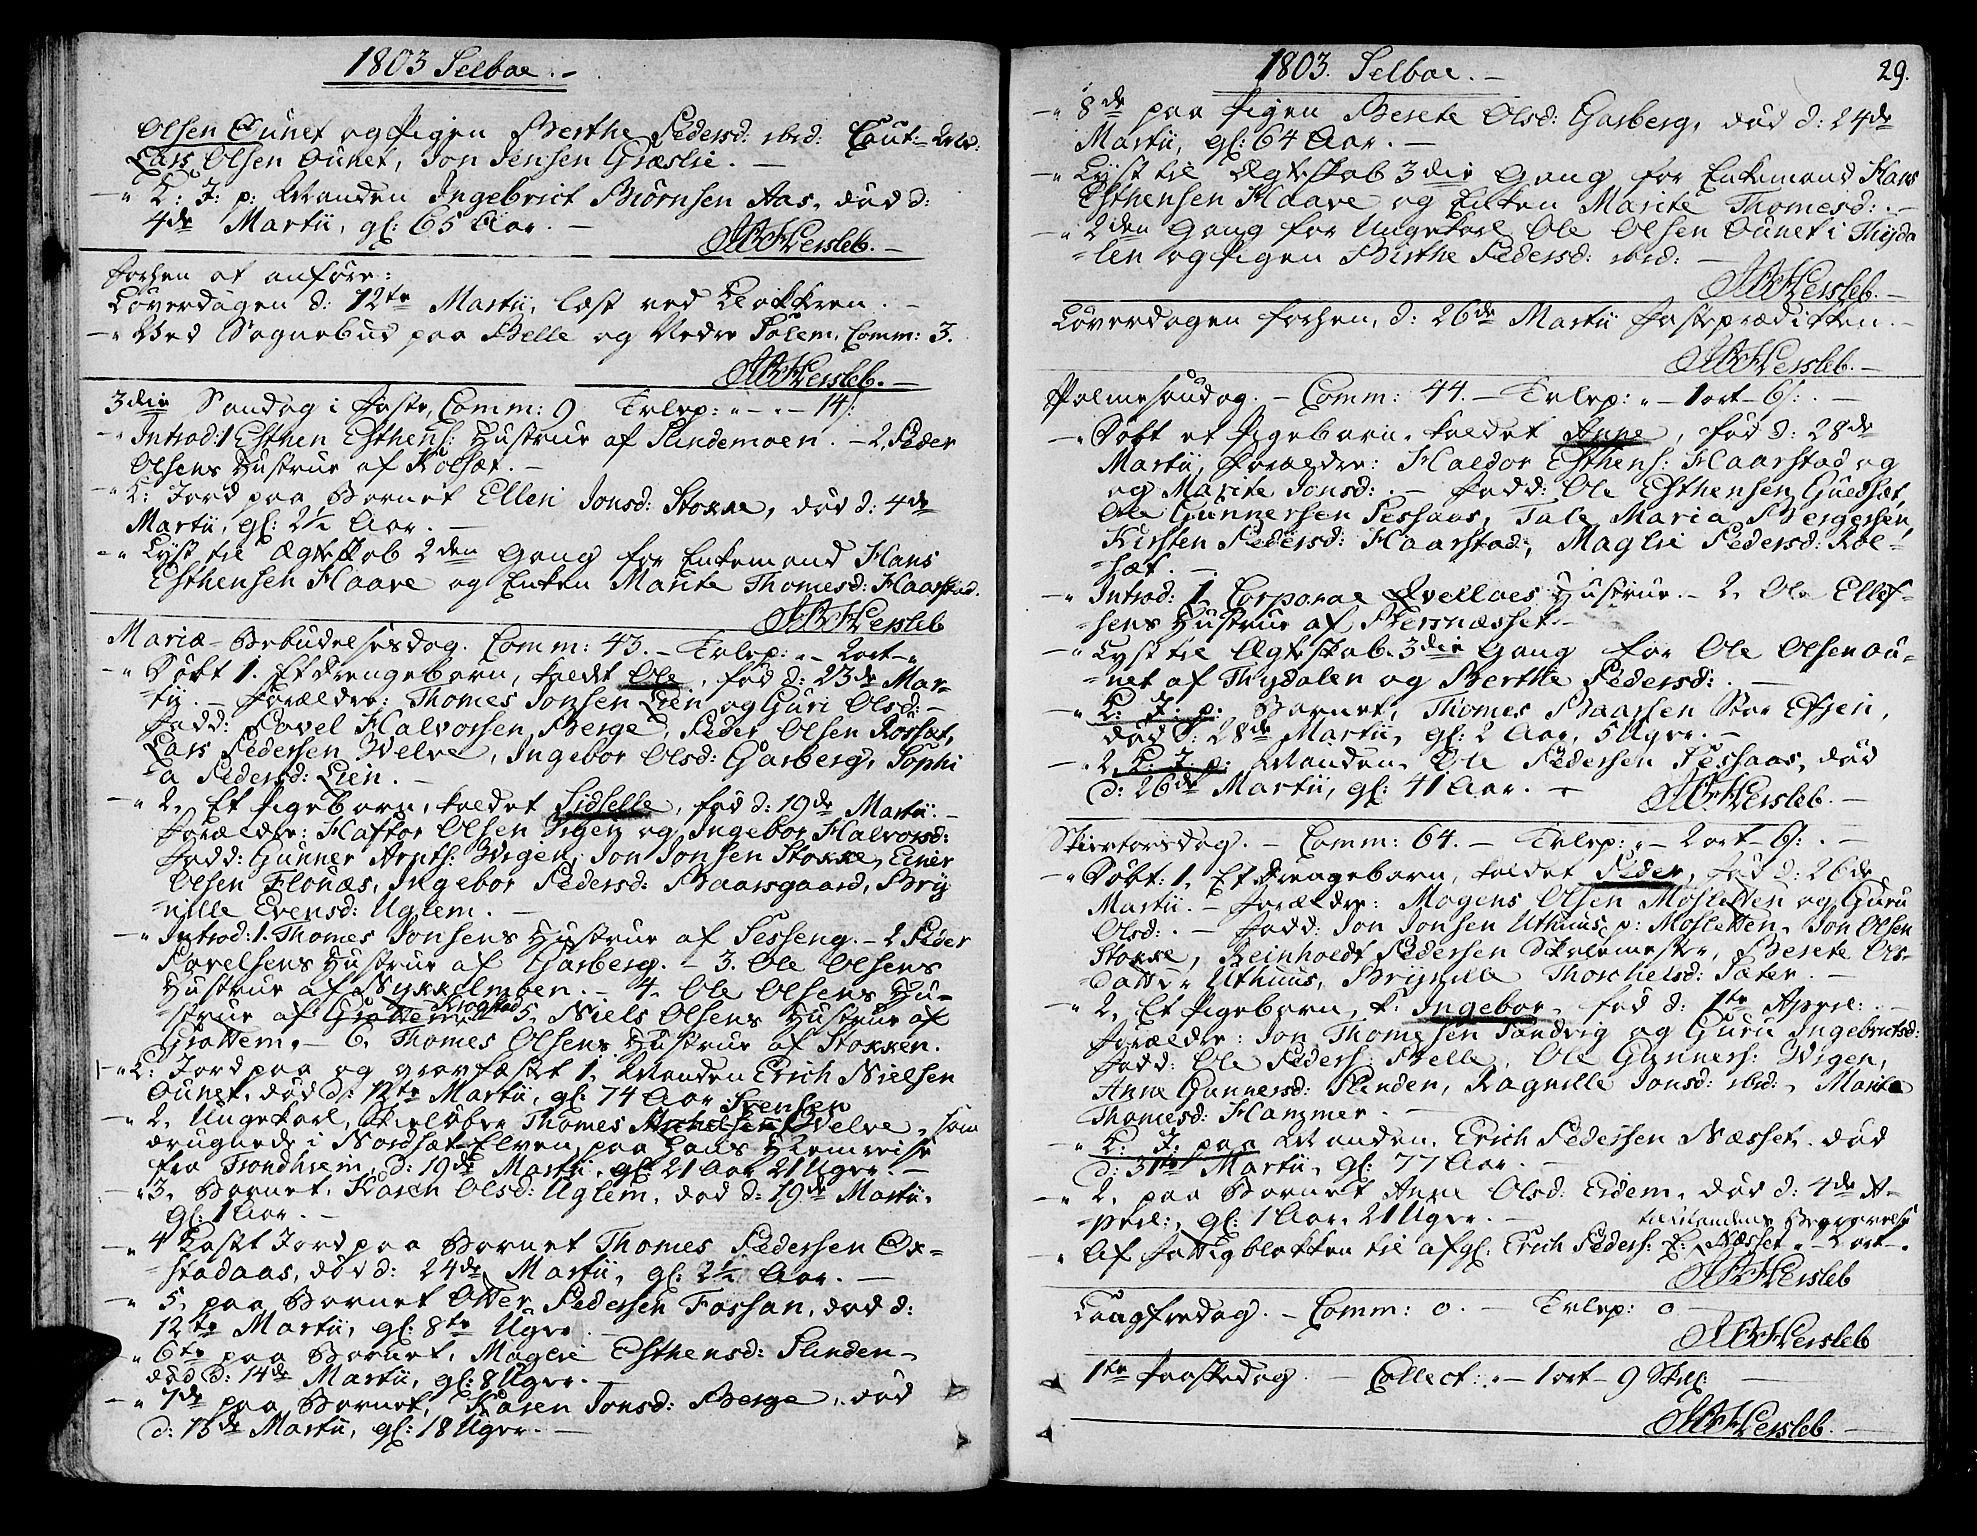 1803 Selboe. -
Olsen Ounet og Pigen Berthe Pedersd: ibid: Caut:
Lars Olsen Ounet, Jon Jensen Græslie. -
- " K: J: p: Manden Ingebrict Biörnsen Aas, död d:
4de Martii, gl: 65 Aar. -
HBHersleb. -
forhen at anföre:
Löverdagen d: 12te Martii, læst ved Klokkeren. -
- " Ved Sognebud paa Selle og Nedre Solem, Comm: 3.
HBHersleb. -
3die Söndag i Faste, Comm: 9 Tvlep: " - " - 14 s:
- " Introd: 1 Esthen Esthens: Hustrue af Slindemoen. - 2 Peder
Olsens Hustrue af Kolset. -
- " K: Jord paa Barnet Ellen Jonsd: Stokke, död d: 4de
Martii, gl: 2½ Aar. -
- " Lyst til Ægteskab 2den Gang for Enkemand Hans
Esthensen Haave og Enken Marite Thomesd: Haarstad.
HBHersleb
Mariæ Bebudelsesdag. Comm: 43. - Tvlep: " - 2 ort - "
- " Döbt 1. Et Drengebarn, kaldet Ole, föd d: 23de Mar-
-tii. - Forældre: Thomes Jonsen Lien og Guri Olsd: -
Fadd: Povel Halvorsen Berge, Peder Olsen Rotsæt,
Lars Pedersen Velve, Ingebor Olsd: Garberg, Sophi
a Pedersd: Lien. -
- " 2. Et Pigebarn, kaldet Sidselle, föd d: 19de Martii. -
Forældre: Haftor Olsen Vigen og Ingebor Halvorsd:
Fadd: Gunner Arnts: Vigen, Jon Jonsen Stokke, Einer
Olsen Flönæs, Ingebor Pedersd: Baarsgaard, Bry
-nille Evensd: Uglem. -
- " Introd: 1. Thomes Jonsens Hustrue af Sesseng. - 2 Peder
Povelsens Hustrue af Garberg. - 3. Ole Olsens
Hustrue af Nykkelmoen. - 4. Ole Olsens Hu-
-strue af Grøttem Krogstad 5. Niels Olsens Hustrue af
Grøttem. - 6. Thomes Olsens Hustrue af Stokken.
- " K: Jord paa og gravfæstet 1. Manden Erich Nielsen
Ounet, död d: 12te Martii, gl: 74 Aar
- " 2. Ungekarl, Skielöber Thomes Michelsen Svensen Velve, som
druknede i Nordsæt-Elven paa hans Hiemreise
fra Trondhiem, d: 19de Martii, gl: 21 Aar 21 Uger -
- " 3. Barnet, Karen Olsd: Uglem, död d: 19de Martii,
gl: 1 Aar. -
- " 4 Kastet Jord paa Barnet Thomes Pedersen Ox-
-stadaas, död d: 24de Martii, gl: 2½ Aar. -
- " 5. paa Barnet Otter Pedersen Fossan, död d:
12te Martii, gl: 8te Uger. -
- " 6te paa Barnet, Maglie Esthensd: Slinden,
död d: 14de Martii, gl: 8 Uger. -
- " 7de paa Barnet, Karen Jonsd: Berge, död
d: 15de Martii, gl: 18 Uger. -
1803. Selboe. -
29.
- " 8de paa Pigen Berete Olsd: Garberg, död d: 24de
Martii, gl: 64 Aar. -
- " Lyst til Ægteskab 3die Gang for Enkemand Hans
Esthensen Haave og Enken Marite Thomesd: -
- " 2den Gang for Ungekarl Ole Olsen Ounet i Thyda
-len og Pigen Berthe Pedersd: ibid: -
HBHersleb. -
Löverdagen forhen, d: 26de Martii Fasteprædiken. -
HBHersleb. -
Palmesöndag. - Comm: 44. - Tvlep: " - 1 ort - 6 s: -
- " Döbt et Pigebarn, kaldet Anne, föd d: 28de
Martii, Forældre: Haldor Esthens: Haarstad og
og Marite Jonsd: - Fadd: Ole Esthensen Guldsæt,
Ole Gunnersen Sessaas, Tale Maria Bergersen,
Kirsten Pedersd: Haarstad, Maglie Pedersd: Kol-
-sæt. -
- " Introd: 1. Corporal Qvelloes Hustrue - 2. Ole Ellef-
-sens Hustrue af Bersnæsset. -
- " Lyst til Ægteskab 3die Gang for Ole Olsen Ou-
-net af Thydalen og Berthe Pedersd: -
- " K: J: p: Barnet, Thomes Baarsen Stor Efjen,
död d: 28de Martii, gl: 2 Aar, 5 Uger. -
- " 2. K: J: p: Manden Ole Pedersen Sessaas, död
d: 26de Martii, gl: 41 Aar. -
HBHersleb. -
Skiertorsdag. - Comm: 64. - Tvlep: " - 2 ort - 6 s: -
- " Döbt: 1. Et Drengebarn, kaldet Peder, föd d: 26de
Martii. - Forældre: Mogens Olsen Mosletten og Guru
Olsd: - Fadd: Jon Jonsen Uthuus p: Mosletten, Jon Olsen
Stokke, Reinholdt Pedersen Skolemester, Berete Ols-
datter Uthuus, Brynille Thorchelsd: Sæter. -
- " 2. Et Pigebarn, k: Ingebor, föd d: 1te April: -
Forældre: Jon Thomesen Sandvig og Guru Ingebrictsd:
Fadd: Ole Peders: Selle, Ole Gunners: Vigen,
Anne Gunnersd: Slinden, Ragnille Jonsd: ibid:, Marite
Thomesd: Hammer. -
- " K: J: paa Manden, Erich Pedersen Næsset, död
d: 31te Martii, gl: 77 Aar. -
- " 2. paa Barnet Anne Olsd: Eidem, död d: 4de A-
-pril:, gl: 1 Aar, 21 Uger. -
til Mandens Begravelse
" Af Fattigblokken til afgl: Erich Peders: Næsset " - 2 ort - "
HBHersleb
Langfredag. - Comm: 0. - Tvlep: 0 -
HBHersleb
1te Paaskedag. - Collect: " - 1 ort - 9 Skil: -
HBHersleb. -